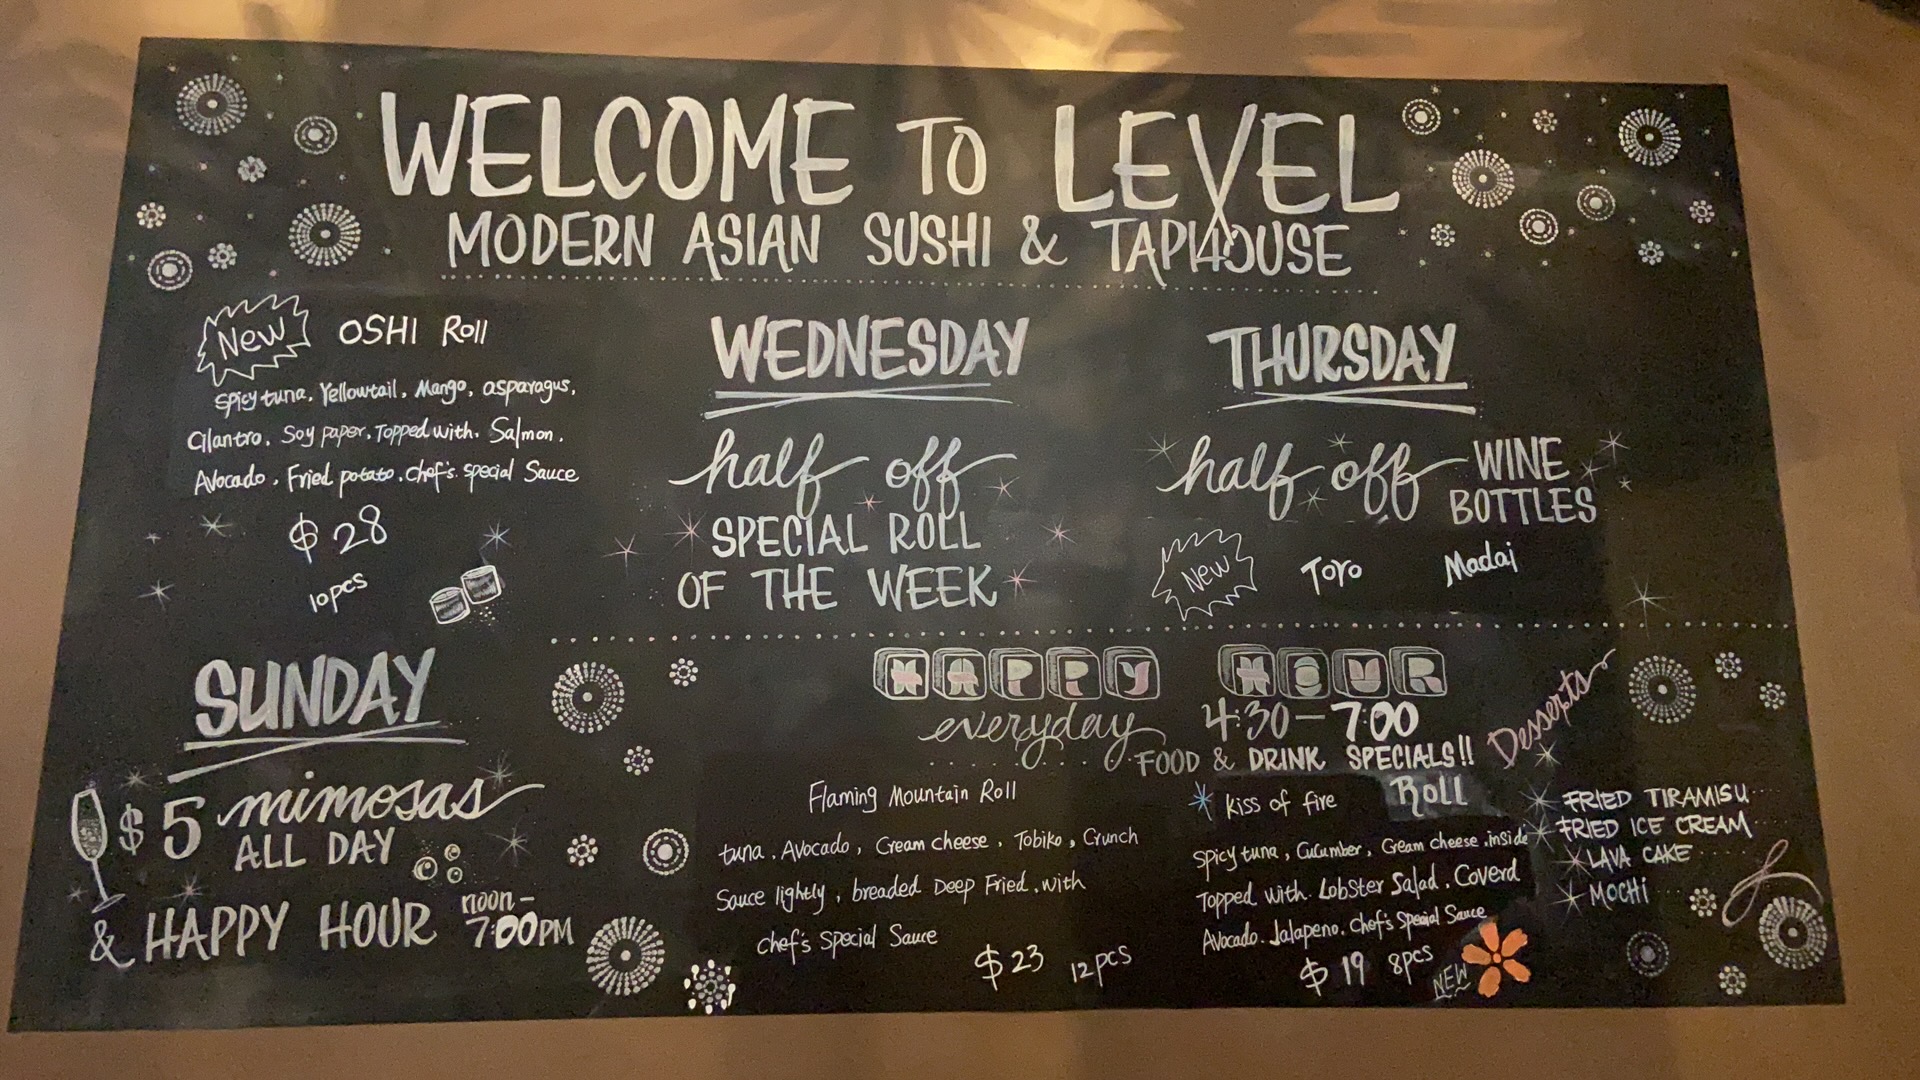 WELCOME TO LEVEL
MODERN ASIAN SUSHI & TAPHOUSE
New OSHI Roll
Spicy tuna, Yellowtail, Mango, asparagus,
Cilantro, Soy paper, Topped with. Salmon,
Avocado, Fried potato, Chef's special Sauce
$28
10pcs
WEDNESDAY
half off
SPECIAL ROLL
OF THE WEEK
THURSDAY
half off WINE
BOTTLES
New Toro Madai
SUNDAY
$5 mimosas
ALL DAY
& HAPPY HOUR noon-
7:00PM
HAPPY HOUR
everyday 4:30-7:00
FOOD & DRINK SPECIALS!!
Flaming Mountain Roll
tuna, Avocado, Cream cheese, Tobiko, Crunch
Sauce lightly, breaded Deep Fried, with
chef's Special Sauce
$23 12pcs
kiss of fire Roll
Spicy tuna, Cucumber, Cream cheese, inside
Topped with. Lobster Salad, Coverd
Avocado. Jalapeno. Chef's Special Sauce
$19 8pcs
NEW
Desserts
FRIED TIRAMISU
FRIED ICE CREAM
LAVA CAKE
MOCHI